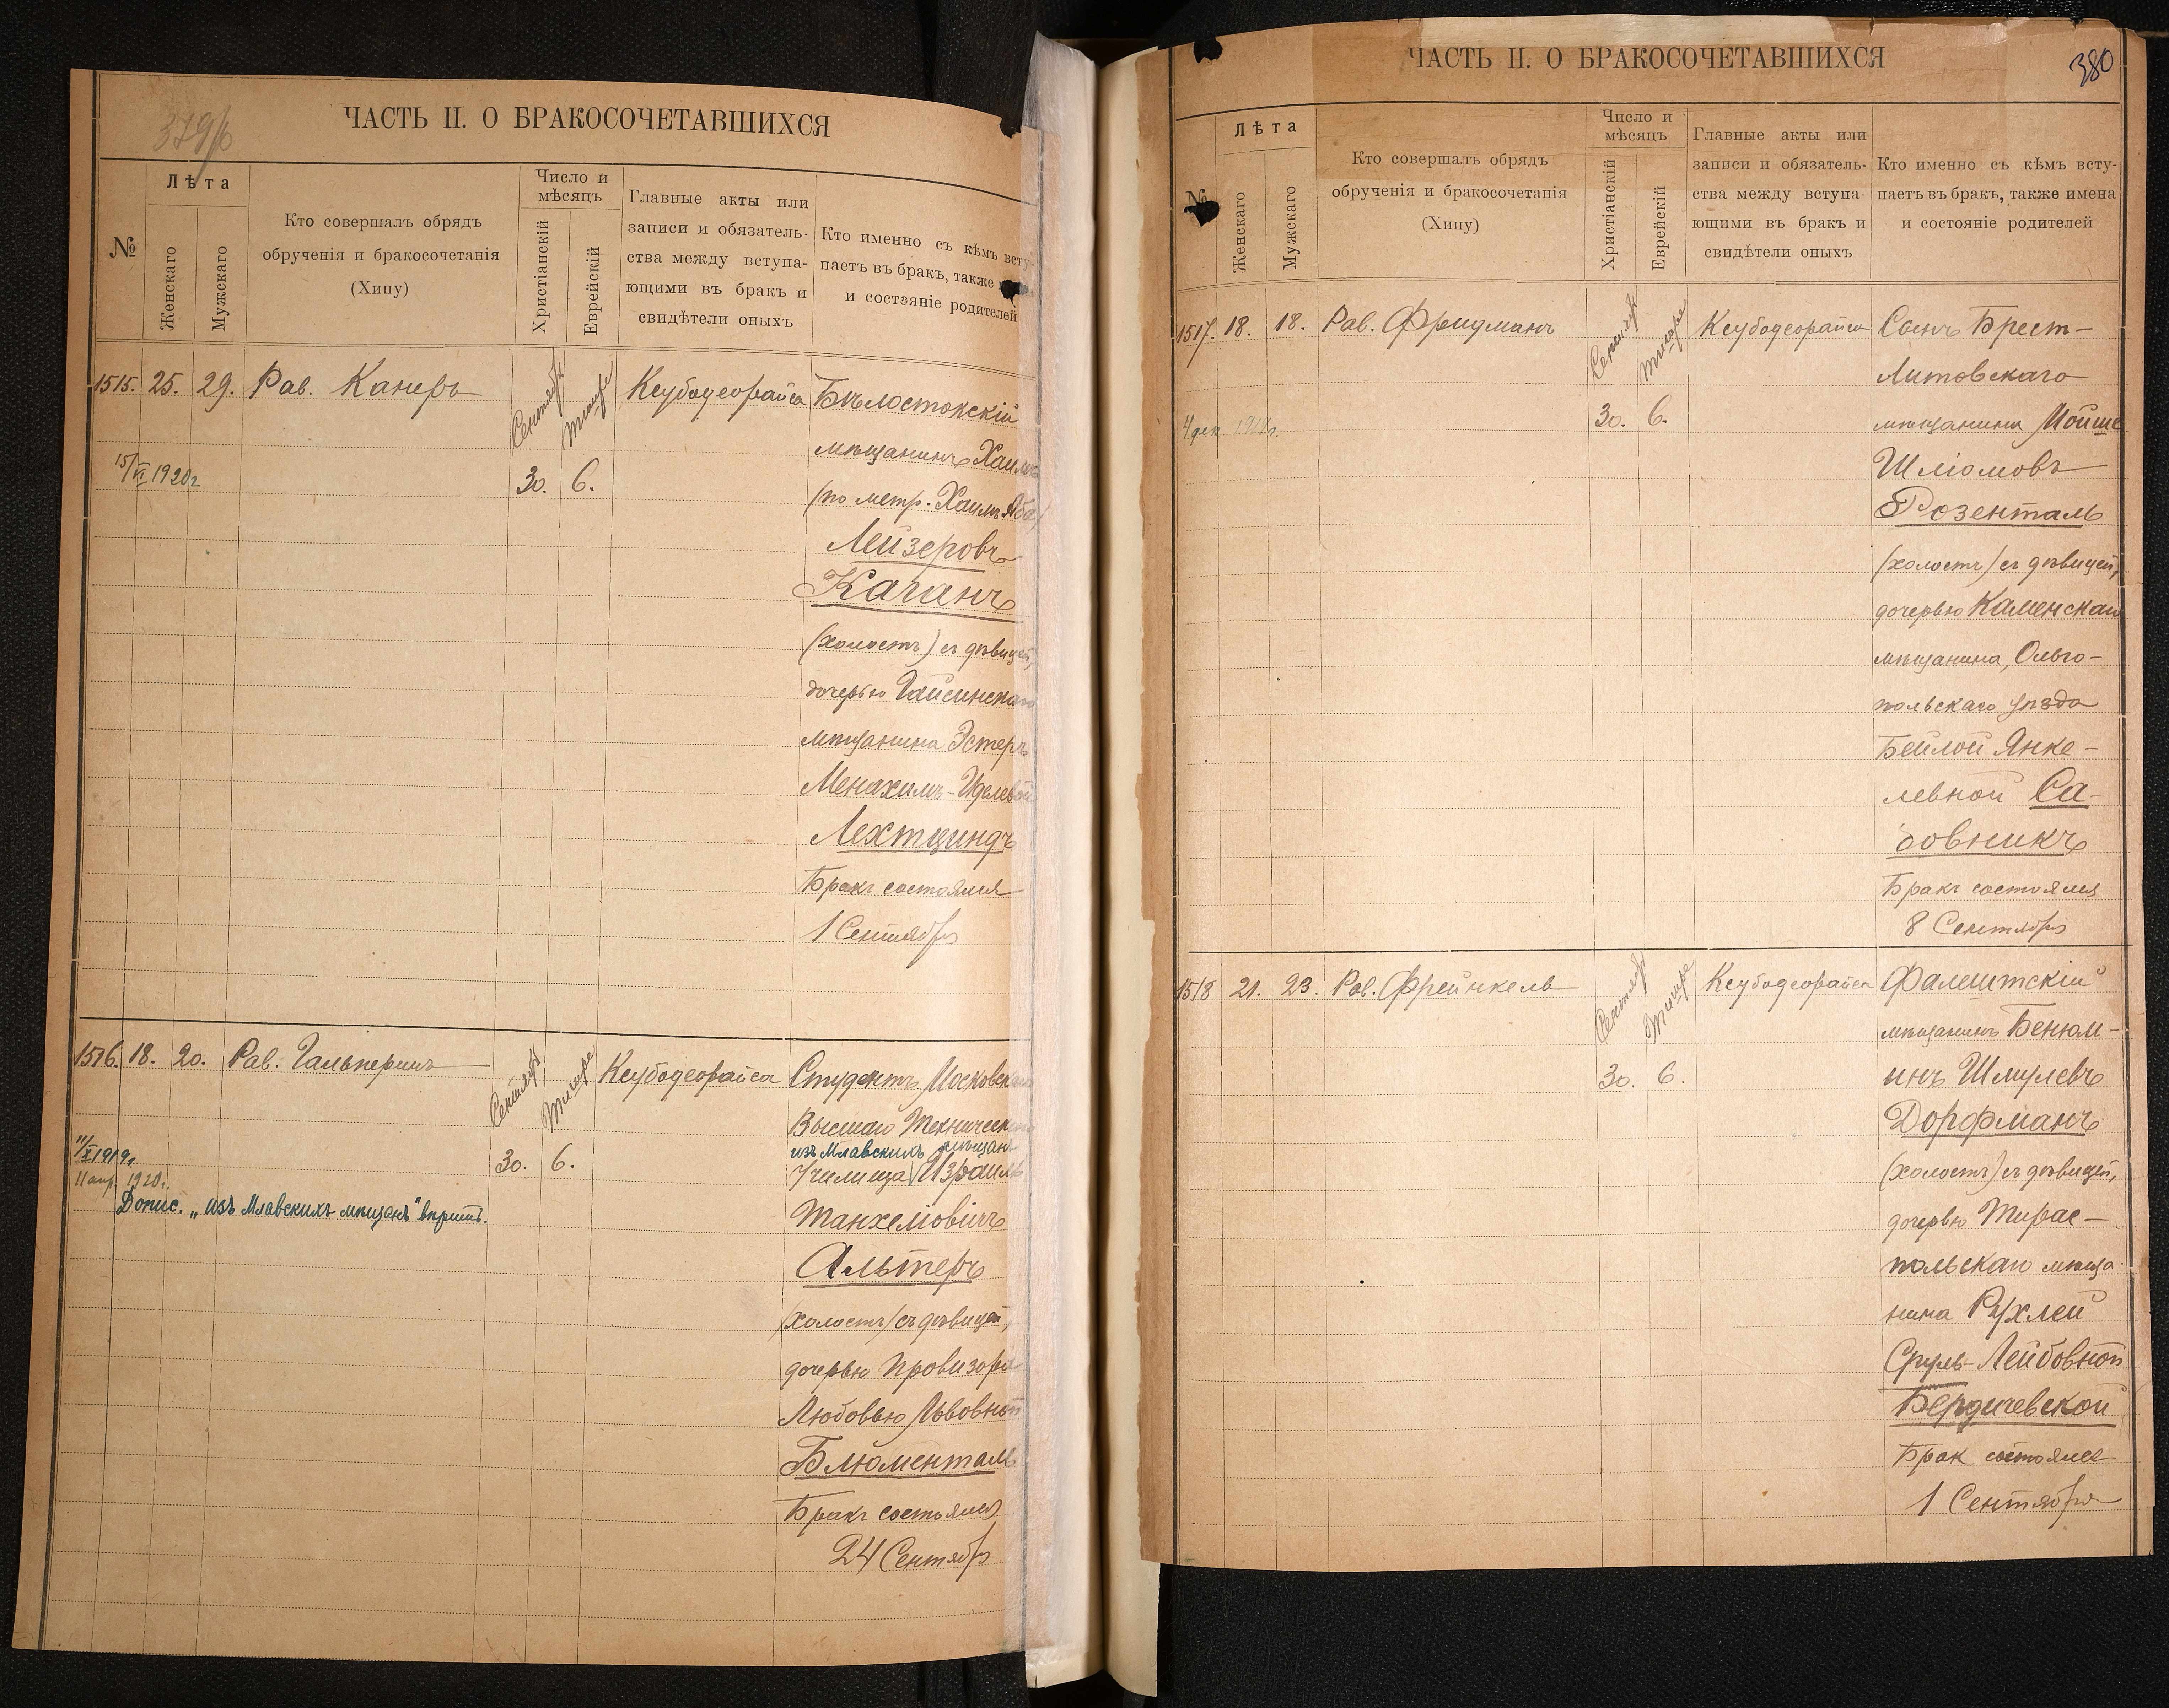 379/б
ЧАСТЬ II. О БРАКОСОЧЕТАВШИХСЯ
№
Лѣта
Женскаго
Мужскаго
Кто совершалъ обрядъ
обрученія и бракосочетанія
(Хипу)
Число и
мѣсяцъ
Христіанскій
Еврейскій
Главные акты или
записи и обязатель-
ства между вступа-
ющими въ бракъ и
свидѣтели оныхъ
Кто именно съ кѣмъ всту-
паетъ въ бракъ, также
и состояніе родителей
1515. 25. 29. Рав. Канеръ
Сентябр Тишре
30. 6.
Кеубодеорайса
15/VI 1920г
Бѣлостокскій
мѣщанинъ Хаимъ
(по метр. Хаимъ Аба)
Лейзеровъ
Каганъ
(холостъ) съ дѣвицей,
дочерью Гайсинскаго
мѣщанина Эстеръ
Менахимъ-Иделевой
Лехтциндъ
Бракъ состоялся
1 Сентября
1516. 18. 20. Рав. Гальперинъ
Сентябр Тишре
30. 6.
Кеубодеорайса
11/X 1919г
11 апр. 1920г.
Допис. „изъ Млавскихъ мѣщанъ"
Студентъ Московскаго
Высшаго Техническаго
изъ Млавскихъ мѣщанъ
Училища Израиль
Танхеліовичъ
Альтеръ
(холостъ) съ дѣвицей,
дочерью провизора
Любовью Львовной
Блюменталь
Бракъ состоялся
24 Сентября
380
ЧАСТЬ II. О БРАКОСОЧЕТАВШИХСЯ
№
Лѣта
Женскаго
Мужскаго
Кто совершалъ обрядъ
обрученія и бракосочетанія
(Хипу)
Число и
мѣсяцъ
Христіанскій
Еврейскій
Главные акты или
записи и обязатель-
ства между вступа-
ющими въ бракъ и
свидѣтели оныхъ
Кто именно съ кѣмъ всту-
паетъ въ бракъ, также имена
и состояніе родителей
1517. 18. 18. Рав. Фридманъ
Сентябр Тишре
30. 6.
Кеубодеорайса
4 дек
Сынъ Брест-
Литовскаго
мѣщанина Мойше
Шліомовъ
Розенталь
(холостъ) съ дѣвицей,
дочерью Каменскаго
мѣщанина, Ольго-
польскаго уѣзда
Бейлой Янке-
левной Са-
довникъ
Бракъ состоялся
8 Сентября
1518 21. 23. Рав. Фрейнкель
Сентябр Тишре
30. 6.
Кеубодеорайса
Фалештскій
мѣщанинъ Бенюм-
инъ Шмулевъ
Дорфманъ
(холостъ) съ дѣвицей,
дочерью Тирас-
польскаго мѣща-
нина Рухлей
Сруль-Лейбовной
Бердичевской
Брак состоялся
1 Сентября